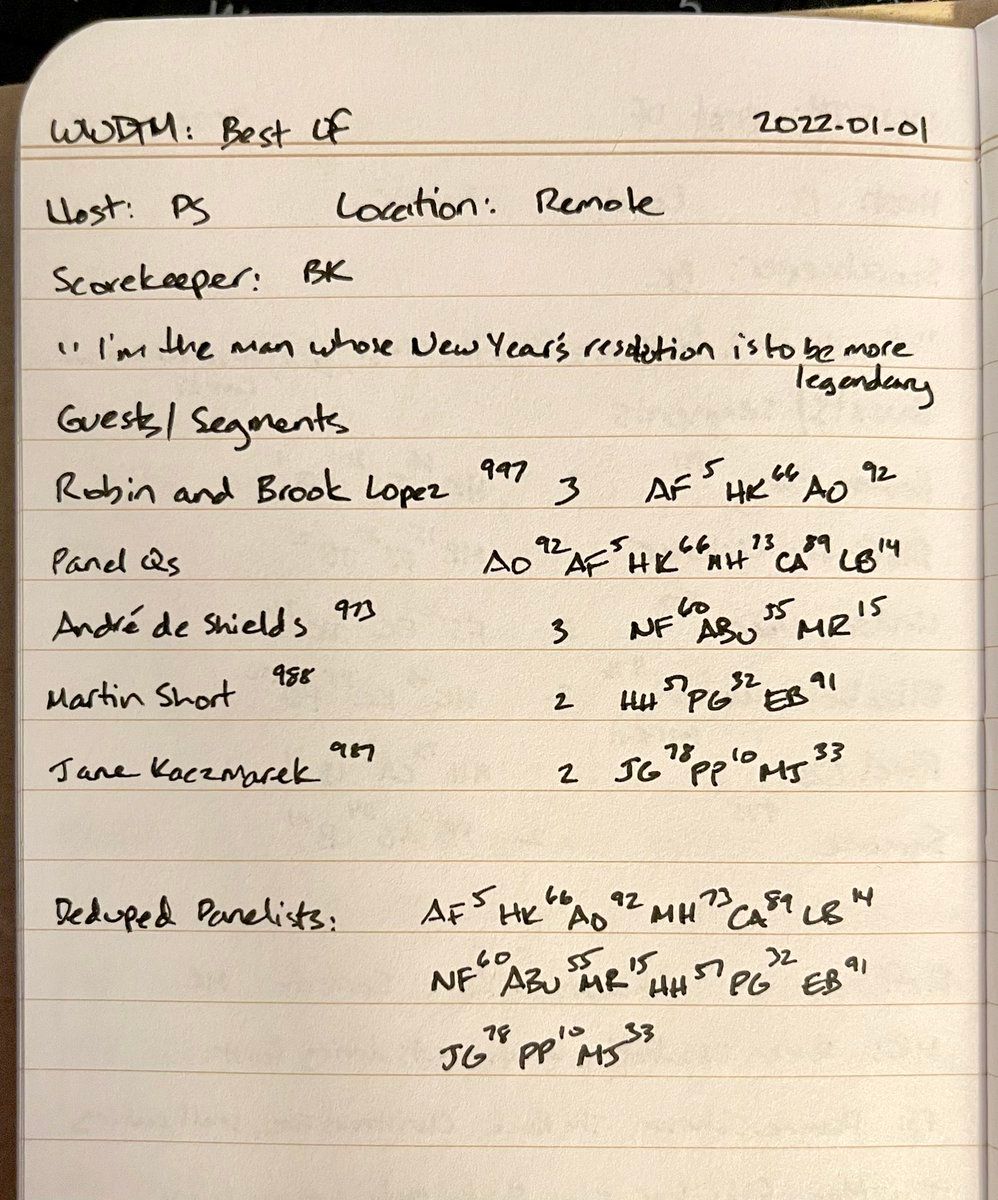 WWDTM: Best Of 2022-01-01
Host: PS Location: Remote
Scorekeeper: BK
" I'm the man whose New Year's resolution is to be more
legendary
Guests/Segments
Robin and Brook Lopez 997 3 AF 5 HK 66 AO 92
Panel Qs AO 92 AF 5 HK 66 MH 73 CA 89 LB 14
André de Shields 973 3 NF 60 ABU 55 MR 15
Martin Short 988 2 HH 57 PG 32 EB 91
Jane Kaczmarek 987 2 JG 78 PP 10 MJ 33
Deduped Panelists: AF 5 HK 66 AO 92 MH 73 CA 89 LB 14
NF 60 ABU 55 MR 15 HH 57 PG 32 EB 91
JG 78 PP 10 MJ 33